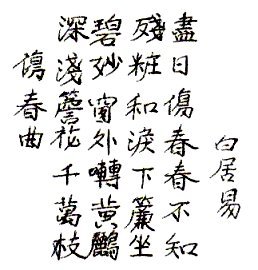 傷春曲
深淺簷花千萬枝
碧妙窗外囀黃鸝
殘粧和淚下簾坐
盡日傷春春不知
白居易